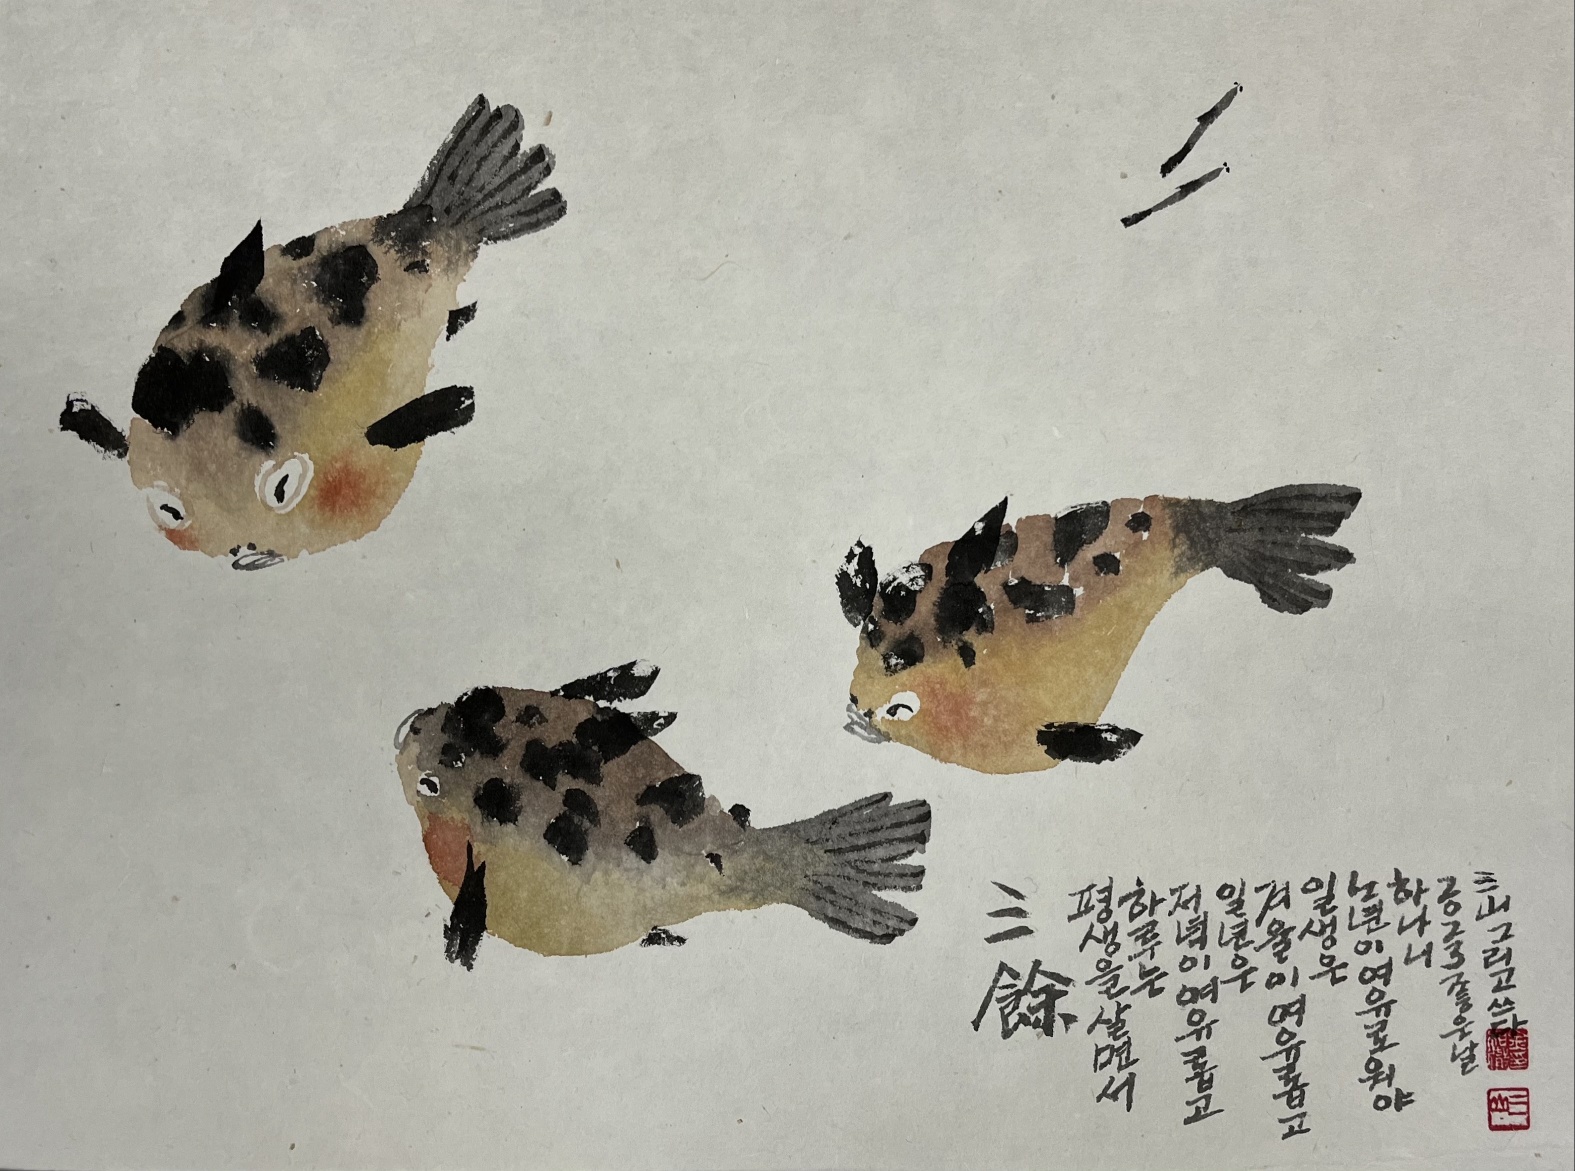 三餘
평생을 살면서
하루는
저녁이 여유롭고
일년은
겨울이 여유롭고
일생은
노년이 여유로워야
하나니
2023 좋은날
三山 그리고 쓰다
三山